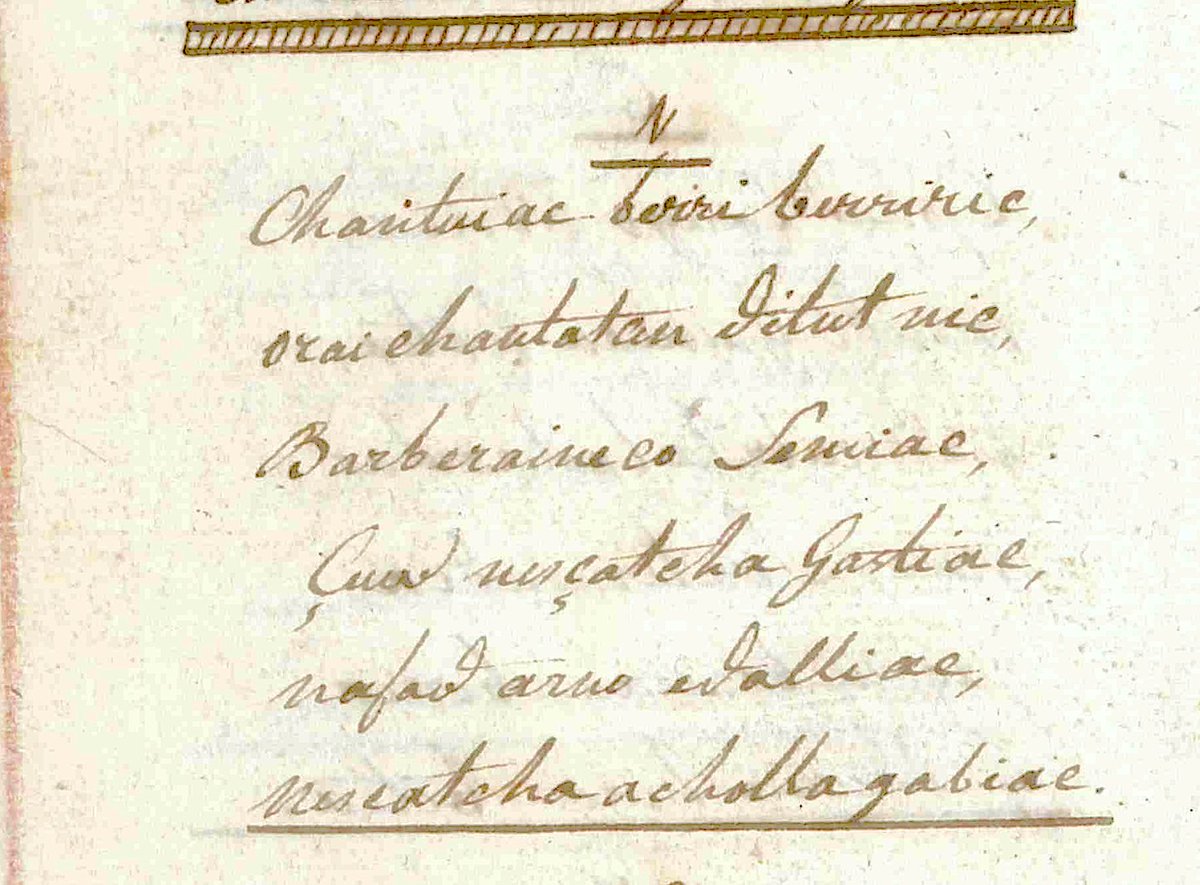 N
Chantuiac berri berriric,
orai chantatan ditut nic,
Barberaineco Semiac,
Çura nesçatcha Gastiac,
arno edalliac,
nescatcha acholla gabiac.